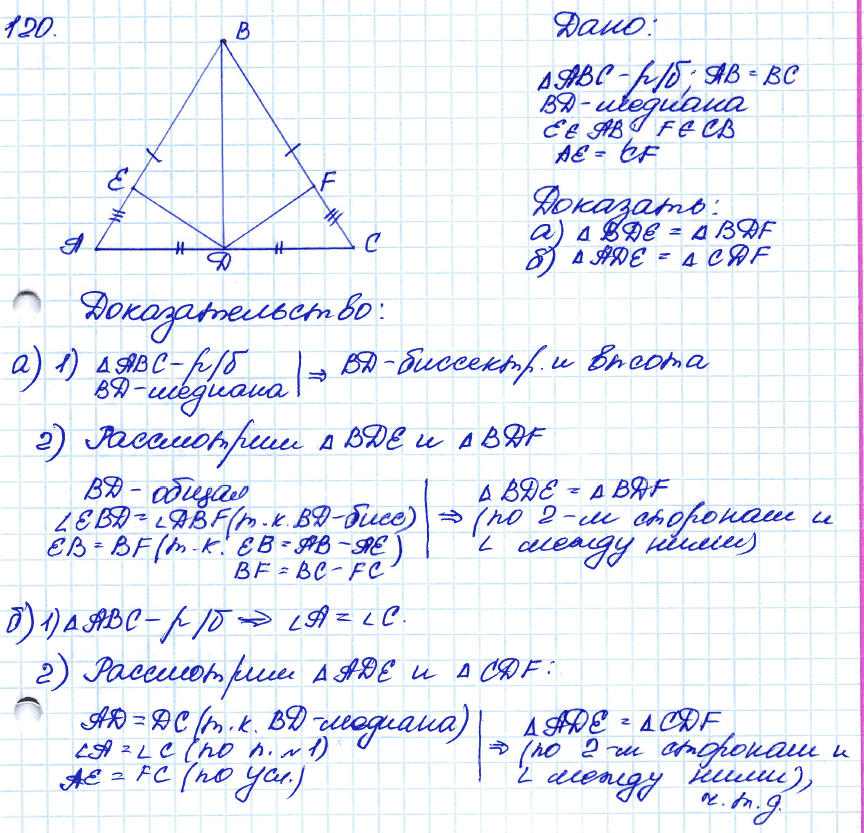 120.
B
E
F
A
D
C
Дано:
△ABC - р/б; AB = BC
BD - медиана
E ∈ AB; F ∈ CB
AE = CF
Доказать:
а) △ BDE = △ BDF
б) △ ADE = △ CDF
Доказательство:
а) 1) △ABC - р/б
BD - медиана
⇒ BD - биссектр. и высота
2) Рассмотрим △ BDE и △ BDF
BD - общая
∠EBD = ∠DBF (т.к. BD - бисс)
EB = BF (т.к. EB = AB - AE)
BF = BC - FC
⇒ △ BDE = △ BDF
(по 2-м сторонам и
∠ между ними)
б) 1) △ABC - р/б ⇒ ∠A = ∠C.
2) Рассмотрим △ADE и △CDF:
AD = DC (т.к. BD - медиана)
∠A = ∠C (по п. №1)
AE = FC (по усл.)
⇒ △ADE = △CDF
(по 2-м сторонам и
∠ между ними),
ч.т.д.